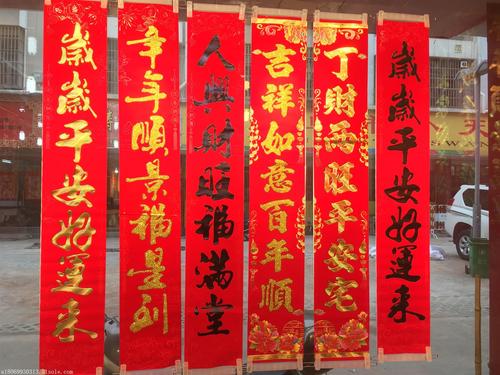 歲歲平安好運来
年年順景福星到
人興財旺福滿堂
吉祥如意百年順
丁財兩旺平安宅
歲歲平安好運来
天